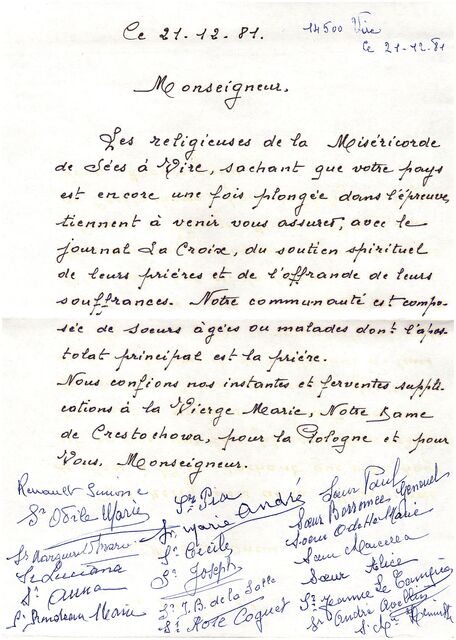 Ce 21-12-81.
14500 Vire
Ce 21-12-81
Monseigneur.
Les religieuses de la Miséricorde
de Sées à Vire, sachant que votre pays
est encore une fois plongée dans l'épreuve,
tiennent à venir vous assurer, avec le
journal La Croix, du soutien spirituel
de leurs prières et de l'offrande de leurs
souffrances. Notre communauté est compo-
sée de sœurs âgées ou malades dont l'apos-
tolat principal est la prière.
Nous confions nos instantes et ferventes suppli-
cations à la Vierge Marie, Notre Dame
de Crestochowa, pour la Pologne et pour
Vous, Monseigneur.
Renault Simone
Sr Odile Marie
Sr Luciana
Sr Anna
Marie
Sr Pia
Sr Marie André
Sr Cécile
Sr Joseph
Sr J.B. de la Salle
Sr Rose Coquet
Sœur Paul
Sœur Borromée
Sœur Odette Marie
Sœur
Sœur Alice
Sr Jeanne Le
Sr André